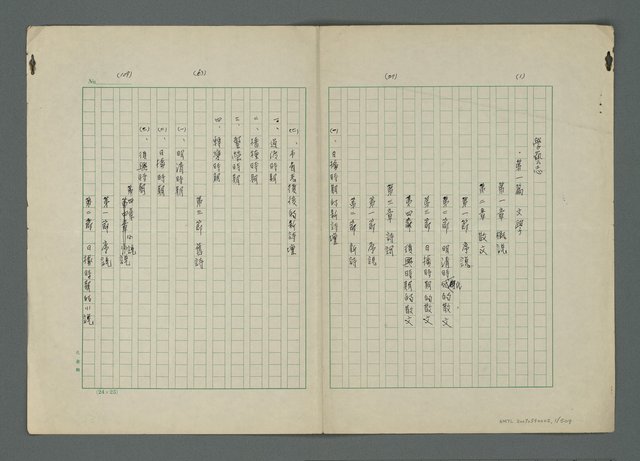 學藝志
第一篇 文學
第一章 概說
第二章 散文
第一節 序說
第二節 明清時代的散文
第三節 日據時期的散文
第四節 復興時期的散文
第三章 詩詞
第一節 序說
第二節 新詩
(一)、日據時期的新詩壇
(二)、本省光復後的新詩壇
一、
二、播種時期
三、
四、
第三節 舊詩
(一)、明清時期
(二)、日據時期
(三)、復興時期
第四章 小說
第一節 序說
第二節 日據時期的小說
No.
(1)
(109)
(24×25)